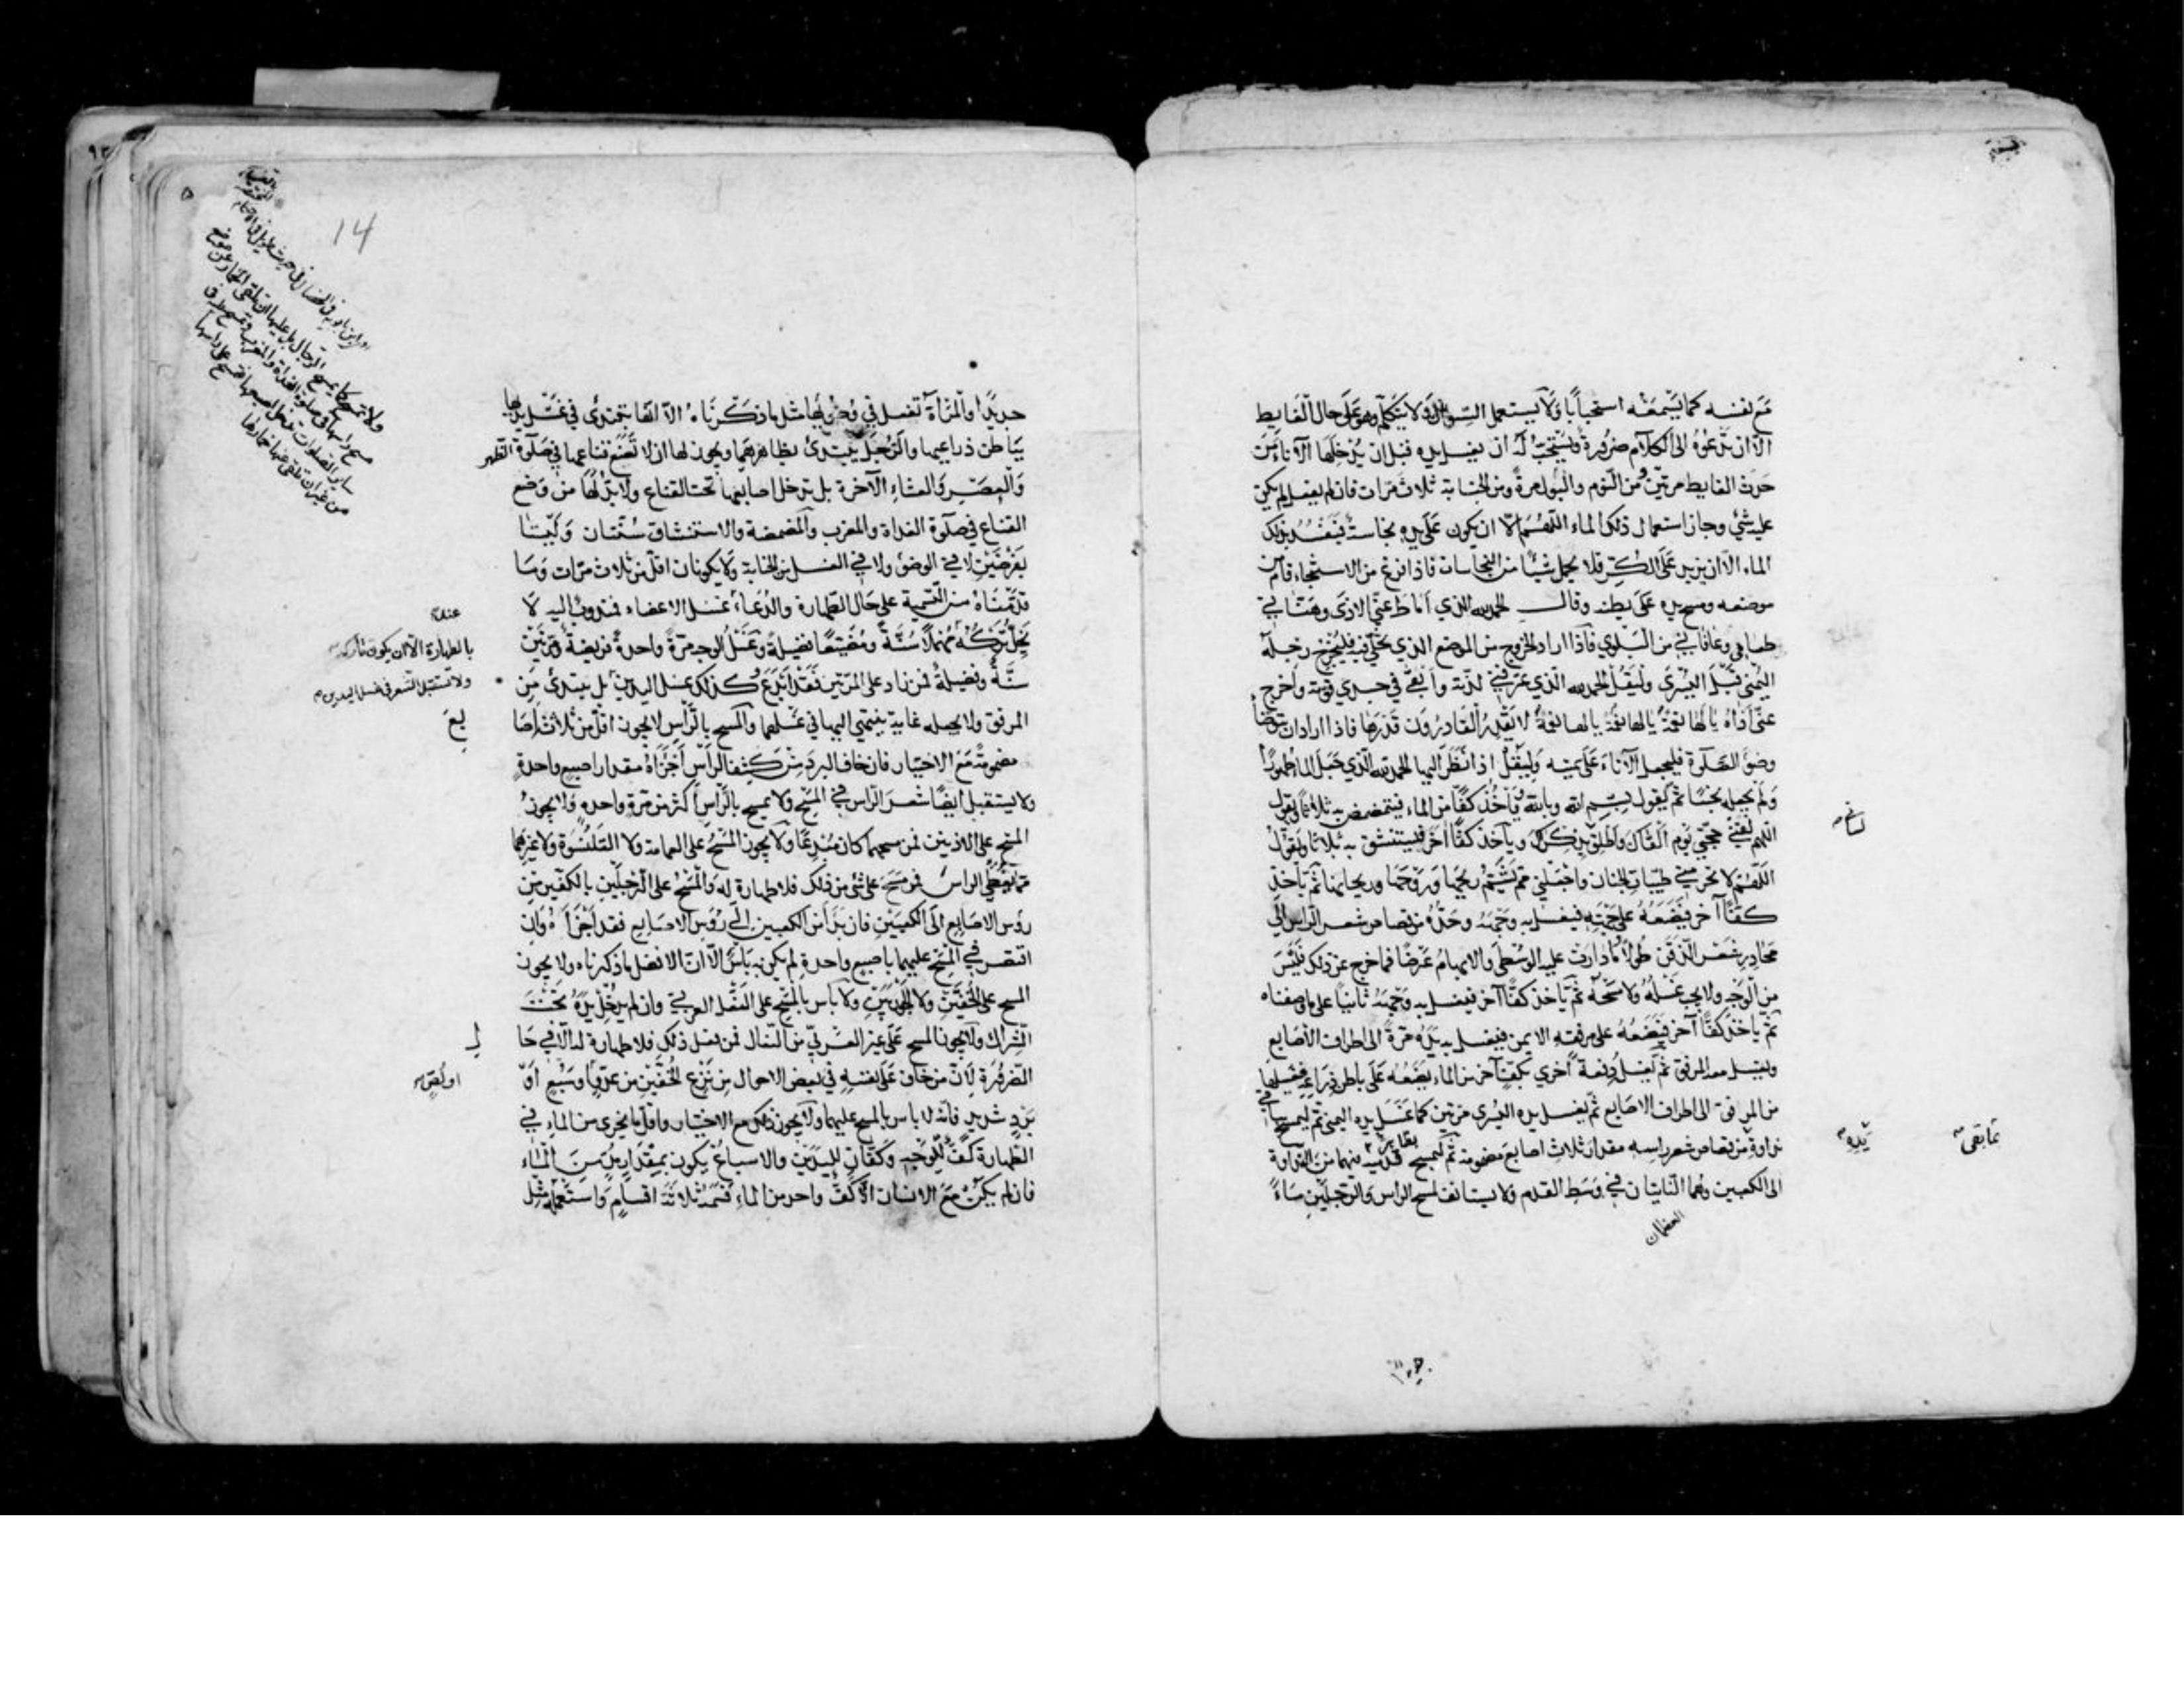 مع نفسه كما يسمعه استحبابا ولا يستعمل السواك ولا يتكلم وهو على حال الغايط
الا ان تدعوه الى الكلام ضرورة ويستحب له ان يغسل يده قبل ان يدخلها الاناء من
حدث الغايط مرتين ومن النوم والبول مرة ومن الجنابة ثلاث مرات فان لم يفعل لم يكن
عليه شئ وجاز استعمال ذلك الماء اللهم الا ان يكون على يده نجاسة فيفسد بذلك
الماء الا ان يزيد على الكر فلا يحمل شيئا من النجاسات فاذا فرغ من الاستنجاء قام من
موضعه ومسح يده على بطنه وقال الحمد لله الذي اماط عني الاذى وهنأني
طعامي وعافاني من البلوي فاذا اراد الخروج من الموضع الذي تخلى فيه فليخرج رجله
اليمنى قبل اليسرى وليقل الحمد لله الذي عرفني لذته وابقى في جسدي قوته واخرج
عني اذاه يا لها نعمة يا لها نعمة يا لها نعمة لا يقدر القادرون قدرها فاذا اراد ان يتوضأ
وضوء الصلوة فليجعل الاناء على يمينه وليقل اذا نظر اليها الحمد لله الذي جعل الماء طهورا
ولم يجعله نجسا ثم يقول بسم الله وبالله ويأخذ كفا من الماء فيتمضمض به ثلاثا ويقول
اللهم لقني حجتي يوم القاك واطلق بذكرك وياخذ كفا آخر فيستنشق به ثلاثا ويقول
اللهم لا تحرمني طيبات الجنان واجعلني ممن يشم ريحها وروحها وريحانها ثم يأخذ
كفا آخر فيضعه على جبهته فيغسل به وجهه وحده من قصاص شعر الراس الى
محادر شعر الذقن طولا وما دارت عليه الوسطى والابهام عرضا فما خرج عن ذلك فليس
من الوجه ولا يجب غسله ولا مسحه ثم ياخذ كفا آخر فيغسل به وجهه ثانيا على ما وصفناه
ثم ياخذ كفا آخر فيضعه على مرفقه الايمن فيغسل به يده مرة الى اطراف الاصابع
ويغسل معه المرفق ثم يغسل دفعة اخرى بكف آخر من الماء يضعه على باطن ذراعه فيغسلها
من المرفق الى اطراف الاصابع ثم يغسل يده اليسرى مرتين كما غسل يده اليمنى ثم ليمسح بما في
نداوة من قصاص شعر راسه مقدار ثلاث اصابع مضمومة ثم ليمسح قدميه بما بقى فيهما من النداوة
الى الكعبين وهما النابتان في وسط القدم ولا يستانف لمسح الراس والرجلين ماء
العظمان
لساني
يديه
مما بقى
14
جديدا والمرأة تغسل في وضوئها مثل ما ذكرناه الا انها تبتدئ في غسل يديها
بباطن ذراعيها والرجل يبتدئ بظاهرهما ويجوز لها ان لا تضع قناعها في صلوة الظهر
والعصر والعشاء الآخرة بل تدخل اصابعها تحت القناع ولا بد لها من وضع
القناع في صلوة الغداة والمغرب والمضمضة والاستنشاق سنتان وليستا
بفرضين لا في الوضوء ولا في الغسل من الجنابة ولا يكونان اقل من ثلاث مرات وما
قدمناه من التسمية على حال الطهارة والدعاء عند غسل الاعضاء فمندوب اليه لا
يخل تركه مهملا سنة ومضيعا فضيلة وغسل الوجه مرة واحدة فريضة ومرتين
سنة وفضيلة فمن زاد على المرتين فقد ابدع وكذلك غسل اليدين بل يبتدئ من
المرفق ولا يجعله غاية ينتهي اليها في غسلهما والمسح بالراس لا يجوز اقل من ثلاث اصا
مضمومة مع الاختيار فان خاف البرد من كشف الراس اجزأه مقدار اصبع واحدة
ولا يستقبل ايضا شعر الراس في المسح ولا يمسح بالراس اكثر من مرة واحدة ولا يجوز
المسح على الاذنين فمن مسحهما كان مبدعا ولا يجوز المسح على العمامة ولا القلنسوة ولا غيرهما
مما يغطي الراس فمن مسح على شئ من ذلك فلا طهارة له والمسح على الرجلين بالكفين من
رؤس الاصابع الى الكعبين فان بدأ من الكعبين الى رؤس الاصابع فقد اجزأه وان
اقتصر في المسح عليهما باصبع واحدة لم يكن به بأس الا ان الافضل ما ذكرناه ولا يجوز
المسح على الخفين ولا الجوربين ولا باس بالمسح على النعل العربي وان لم يدخل يده تحت
الشراك ولا يجوز المسح على غير العربي من النعال فمن فعل ذلك فلا طهارة له الا في حا
الضرورة لان من خاف على نفسه في بعض الاحوال من نزع الخفين من عدو او سبع او
برد شديد فانه لا باس بالمسح عليهما ولا يجوز ذلك مع الاختيار واقل ما يجزى من الماء في
الطهارة كف للوجه وكفان لليدين والاسباغ يكون بمقدار مد من الماء
فان لم يكن مع الانسان الا كف واحد من الماء قسمه ثلاثة اقسام واستعمله مثل
عند
بالطهارة الا ان يكون تاركه
ولا تستقبل الشعر في غسل اليدين
بع
ل
او لص